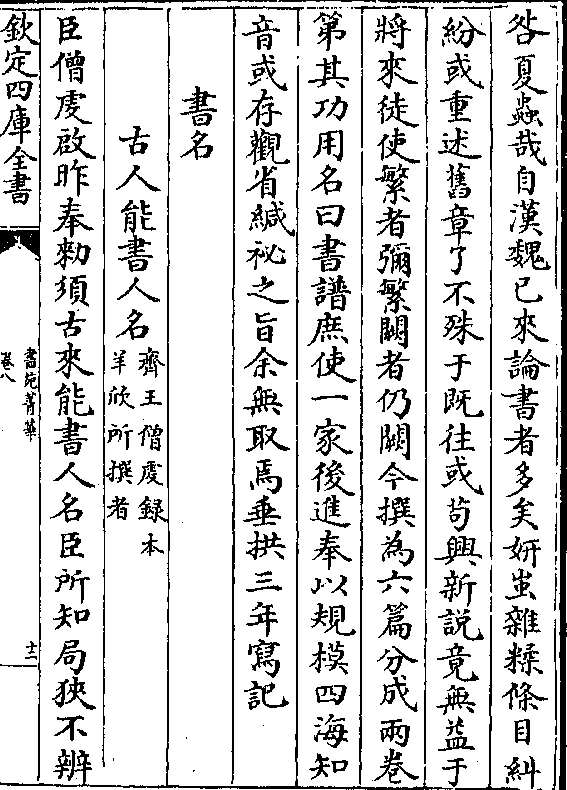 咎夏蟲哉自漢魏已來論書者多矣妍蚩雜糅條目糾
紛或重述舊章了不殊于既往或茍興新說竟無益于
將來徒使繁者彌繁闕者仍闕今撰為六篇分成兩卷
第其功用名曰書譜庶使一家後進奉以規模四海知
音或存觀省緘祕之旨余無取焉垂拱三年寫記
書名
古人能書人名
齊王僧虔録本
羊欣所撰者
臣僧虔啟昨奉勑須古來能書人名臣所知局狹不辨
欽定四庫全書
書苑菁華
卷八
十二